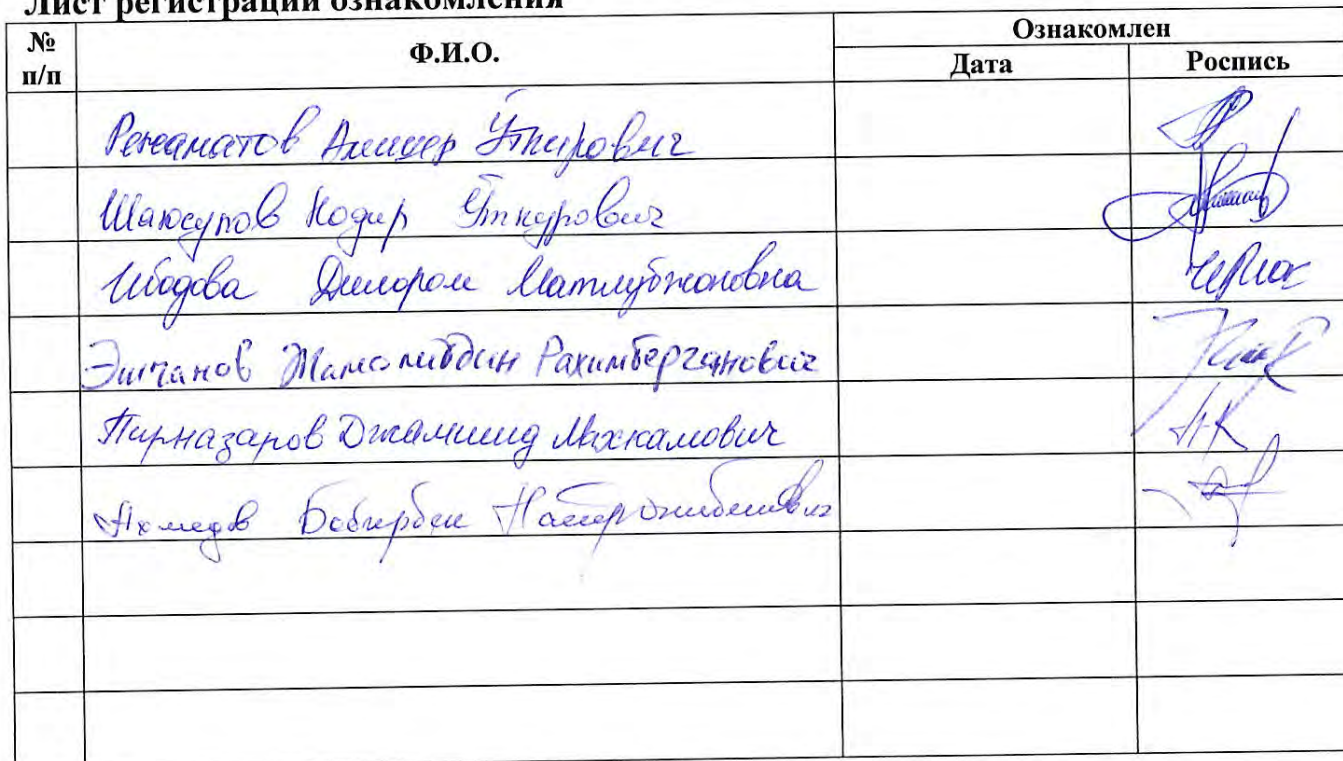 Лист регистрации ознакомления
№ п/п Ф.И.О. Ознакомлен
Дата Роспись
Режаматов Алишер Ўткирович
Шаюсупов Нодир Ўткурович
Ибодова Дилором Матлубжоновна
Эшчанов Жамолиддин Рахимберганович
Пирназаров Джамшид Махкамович
Ахмедов Бобирбек